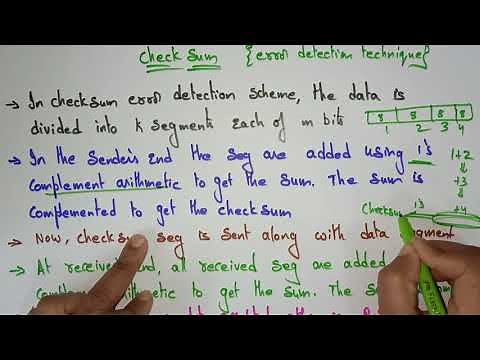 Check Sum {error detection technique}
→ In checksum error detection scheme, the data is
divided into K segments each of m bits
8 8 8 8
1 2 3 4
→ In the Sender's End the seg are added using 1's
complement arithmetic to get the sum. The sum is
complemented to get the checksum
1+2
↓
+3
↓
+4
1's
Checksum
→ Now, checksum seg is sent along with data segment
→ At receiver end, all received seg are added
complement arithmetic to get the sum. The sum